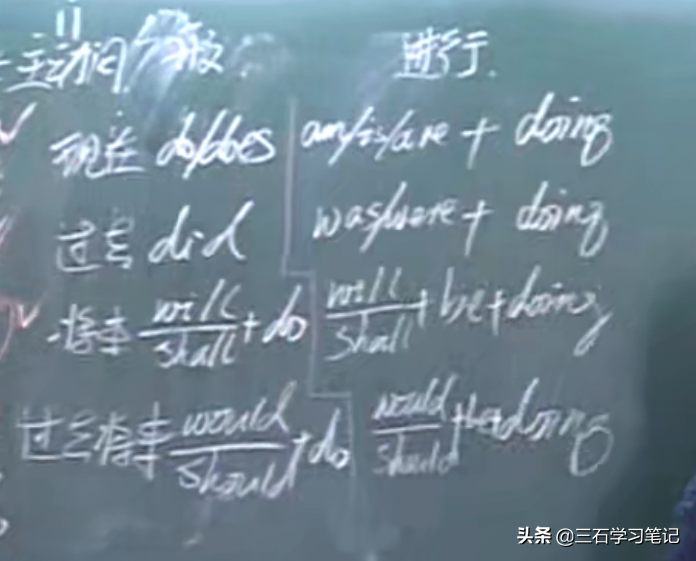 一 主动词 一般 进行.
现在 do/does am/is/are + doing
过去 did was/were + doing
将来 will/shall + do will/shall + be + doing
过去将来 would/should + do would/should + be + doing
头条 @三石学习笔记